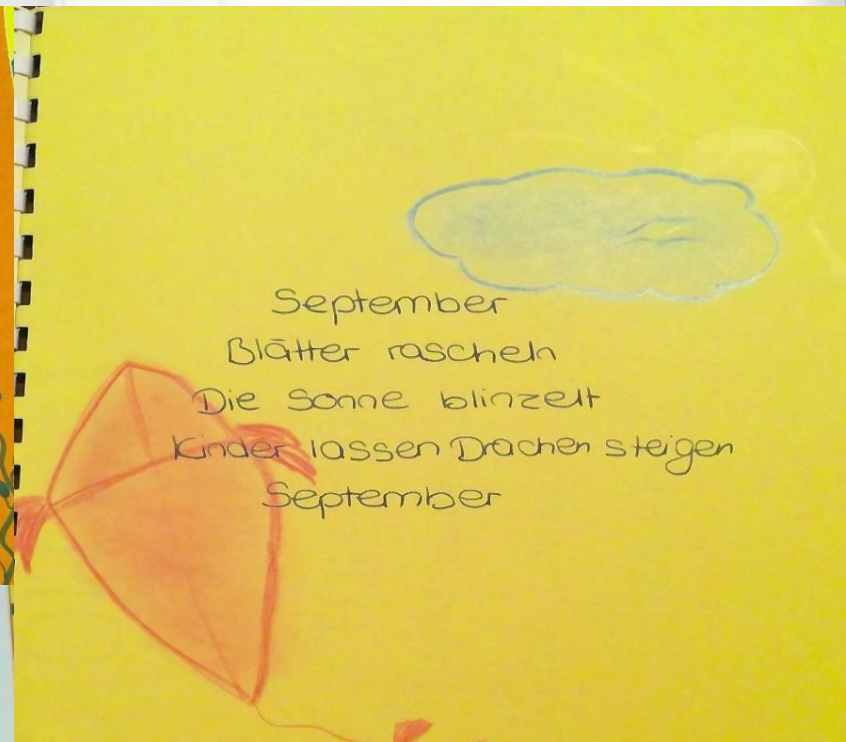 September
Blätter rascheln
Die Sonne blinzelt
Kinder lassen Drachen steigen
September